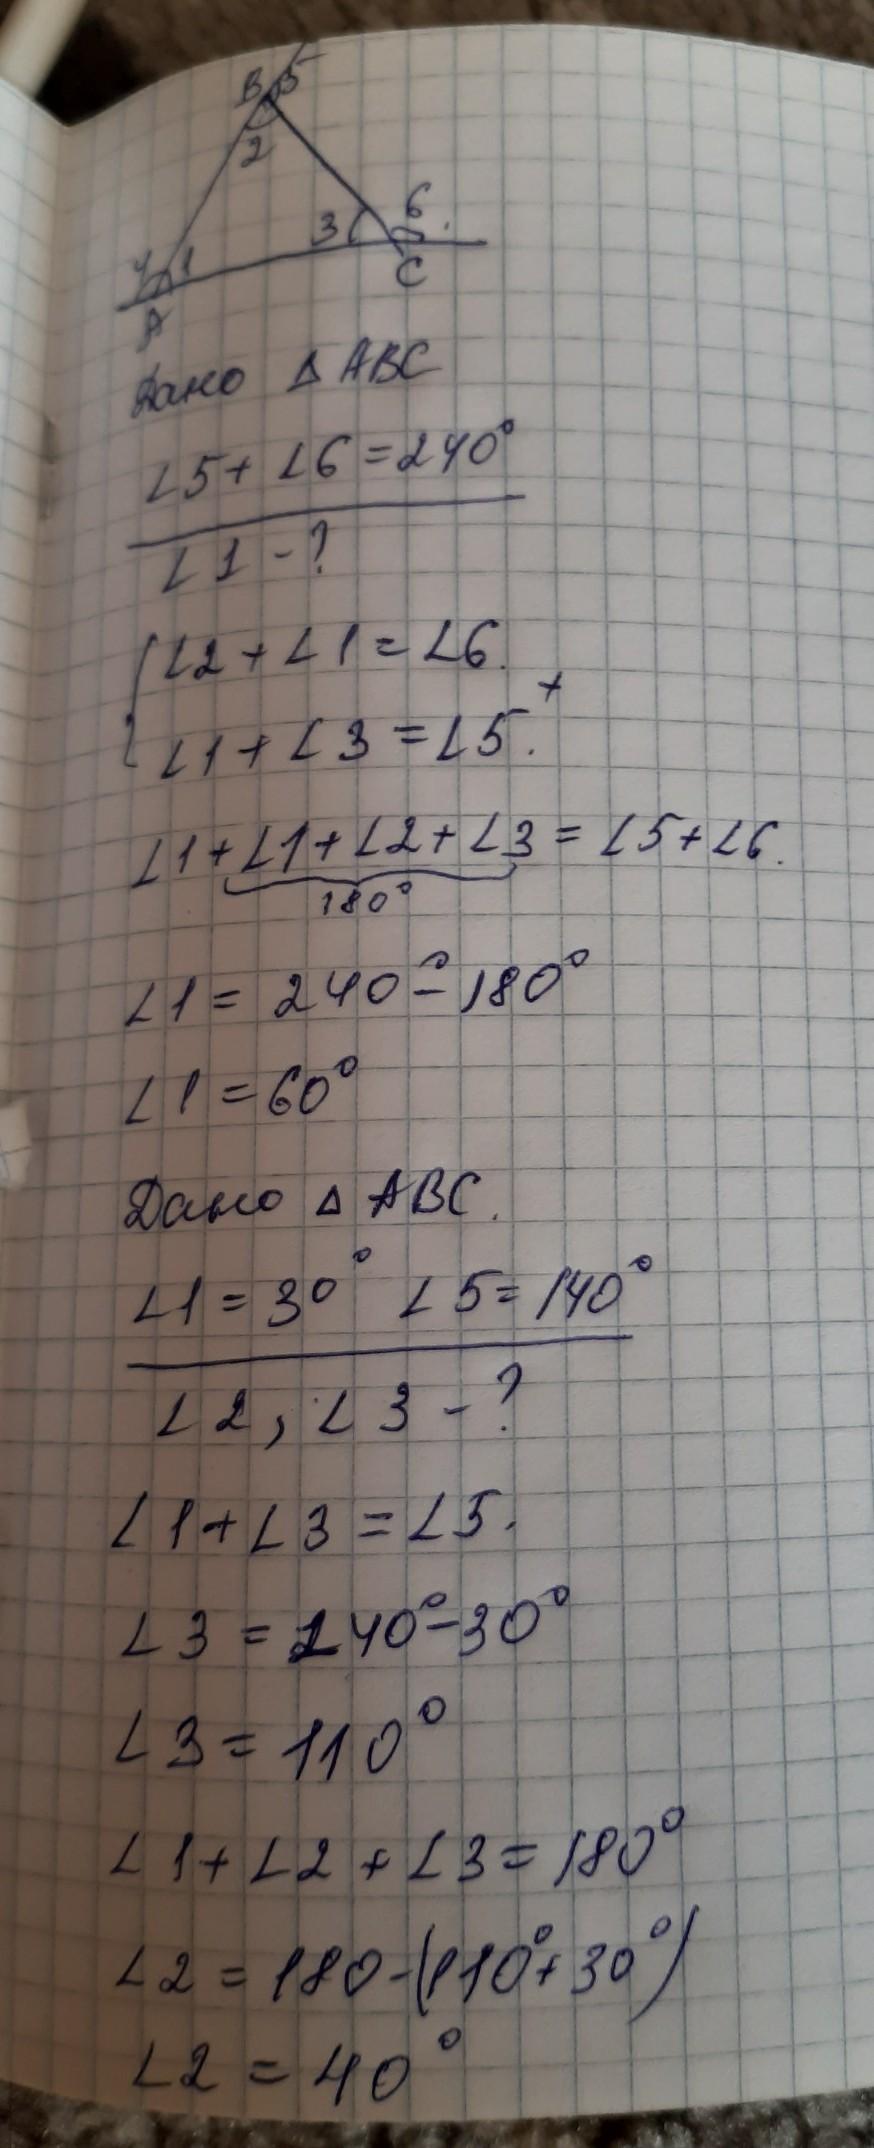 B 5
2
3 6
4 1 C
A
Дано Δ ABC
∠5+ ∠6 = 240°
∠1 - ?
{ ∠2 + ∠1 = ∠6.
∠1 + ∠3 = ∠5. +
∠1 + ∠1 + ∠2 + ∠3 = ∠5 + ∠6.
180°
∠1 = 240° - 180°
∠1 = 60°
Дано Δ ABC.
∠1 = 30° ∠5 = 140°
∠2, ∠3 - ?
∠1 + ∠3 = ∠5.
∠3 = 140° - 30°
∠3 = 110°
∠1 + ∠2 + ∠3 = 180°
∠2 = 180 - (110° + 30°)
∠2 = 40°